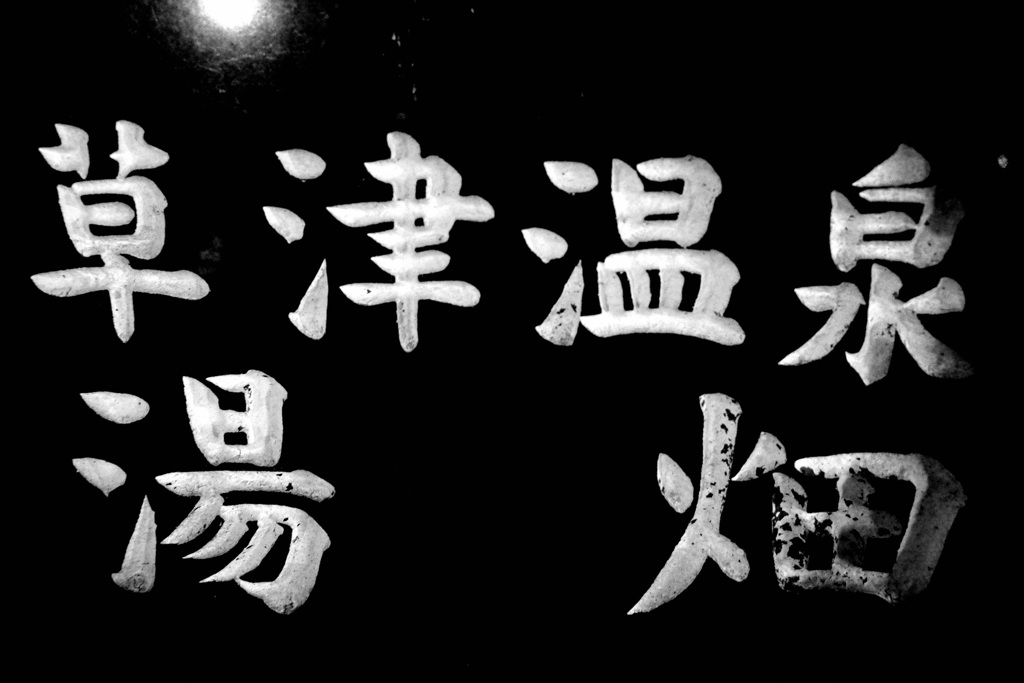 草津温泉
湯畑